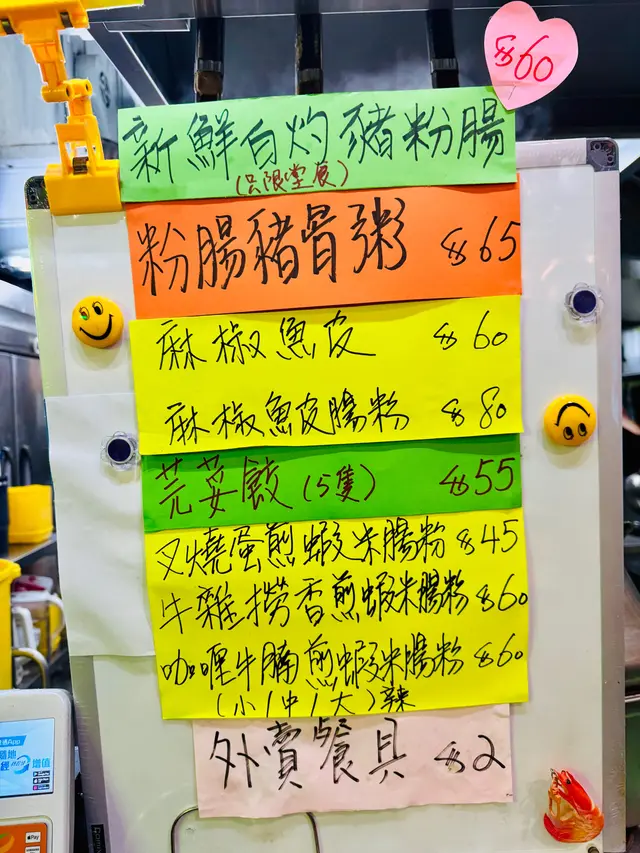 $60
新鮮白灼豬粉腸
(只限堂食)
粉腸豬骨粥 $65
麻椒魚皮 $60
麻椒魚皮腸粉 $80
芫荽餃(5隻) $55
叉燒蛋煎蝦米腸粉 $45
牛雜撈香煎蝦米腸粉 $60
咖喱牛腩煎蝦米腸粉 $60
(小/中/大)辣
外賣餐具 $2
增值
Pay